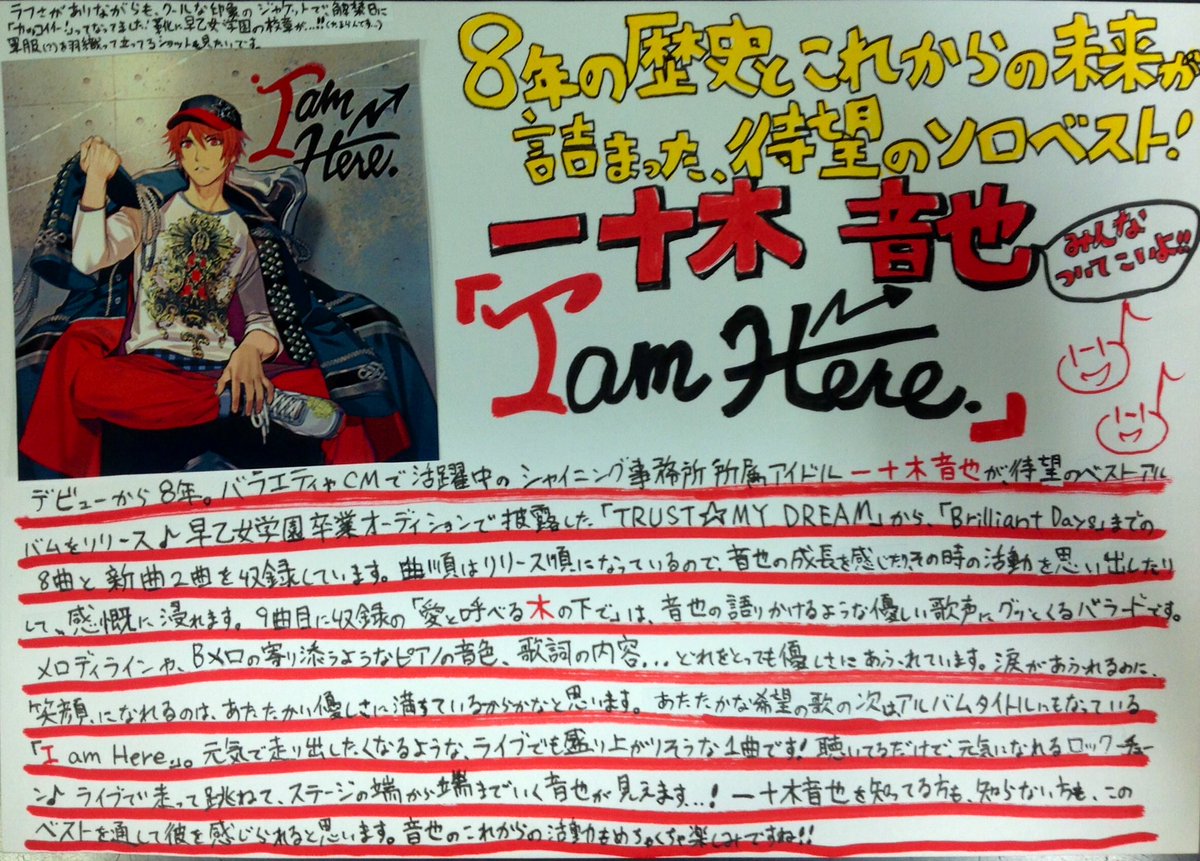 ラフさがありながらも、クールな印象のジャケットで、解禁日に
「カッコイイ〜!」ってなってました!靴に早乙女学園の校章が…!!(たまりんです…)
軍服(?)を羽織って立ってるショットも見たいです。
I am
Here.
8年の歴史とこれからの未来が
詰まった、待望のソロベスト!
一十木 音也
みんな
ついてこいよ!!
「I am Here.」
デビューから8年。バラエティやCMで活躍中のシャイニング事務所所属アイドル一十木音也が、待望のベストアル
バムをリリース♪早乙女学園卒業オーディションで披露した「TRUST☆MY DREAM」から、「Brilliant Days」までの
8曲と新曲2曲を収録しています。曲順はリリース順になっているので、音也の成長を感じたりその時の活動を思い出したり
して、感慨に浸れます。9曲目に収録の「愛と呼べる木の下で」は、音也の語りかけるような優しい歌声にグッとくるバラードです。
メロディラインや、Bメロの寄り添うようなピアノの音色、歌詞の内容...どれをとっても優しさにあふれています。涙があふれるのに、
笑顔になれるのは、あたたかい優しさに満ちているからかなと思います。あたたかな希望の歌の次はアルバムタイトルにもなっている
「I am Here.」。元気で走り出したくなるような、ライブでも盛り上がりそうな1曲です!聴いてるだけで、元気になれるロックチュー
ン♪ライブで走って跳ねて、ステージの端から端までいく音也が見えます...!一十木音也を知ってる方も、知らない方も、この
ベストを通して彼を感じられると思います。音也のこれからの活動もめちゃくちゃ楽しみですね!!